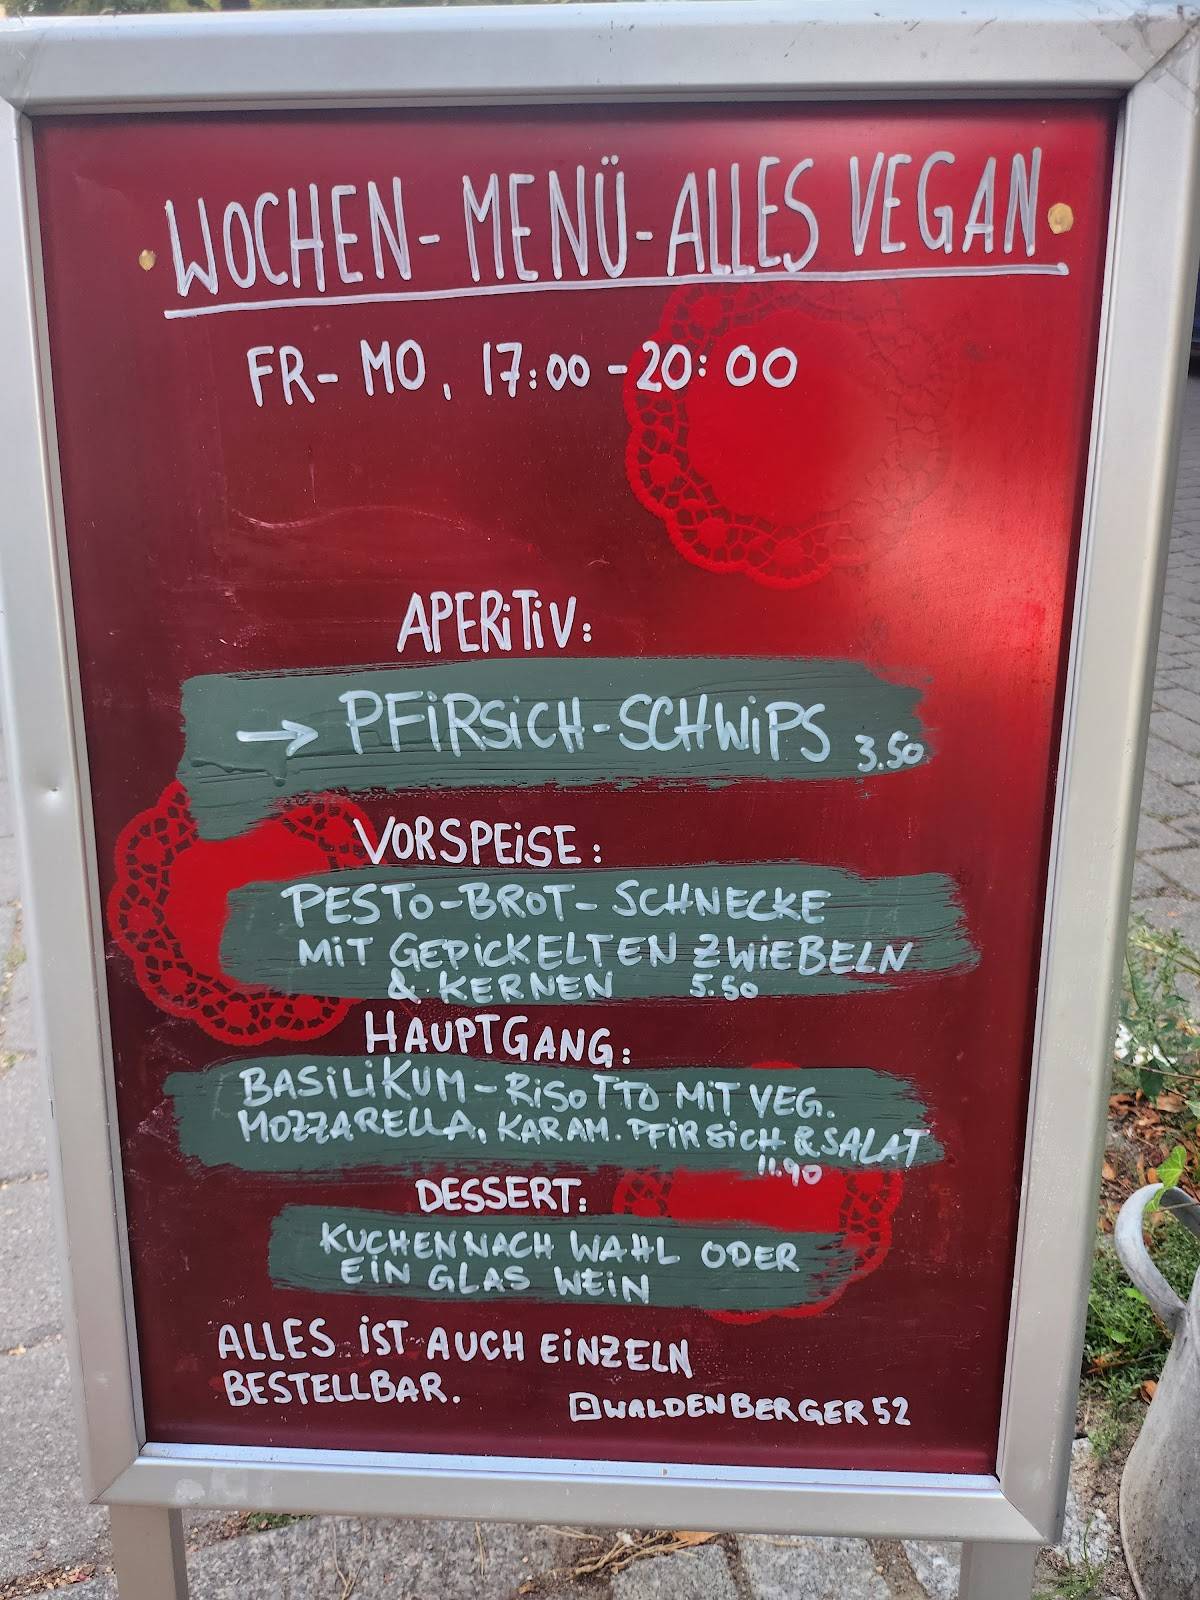 WOCHEN-MENÜ-ALLES VEGAN
FR-MO, 17:00-20:00
APERiTiV:
→ PFiRSiCH-SCHWiPS 3.50
VORSPEiSE:
PESTO-BROT-SCHNECKE
MiT GEPiCKELTEN ZWiEBELN
& KERNEN 5.50
HAUPTGANG:
BASiLiKUM-RiSOTTO MiT VEG.
MOZZARELLA, KARAM. PFiRSiCH & SALAT
11.90
DESSERT:
KUCHEN NACH WAHL ODER
EiN GLAS WEiN
ALLES iST AUCH EiNZELN
BESTELLBAR.
WALDENBERGER52